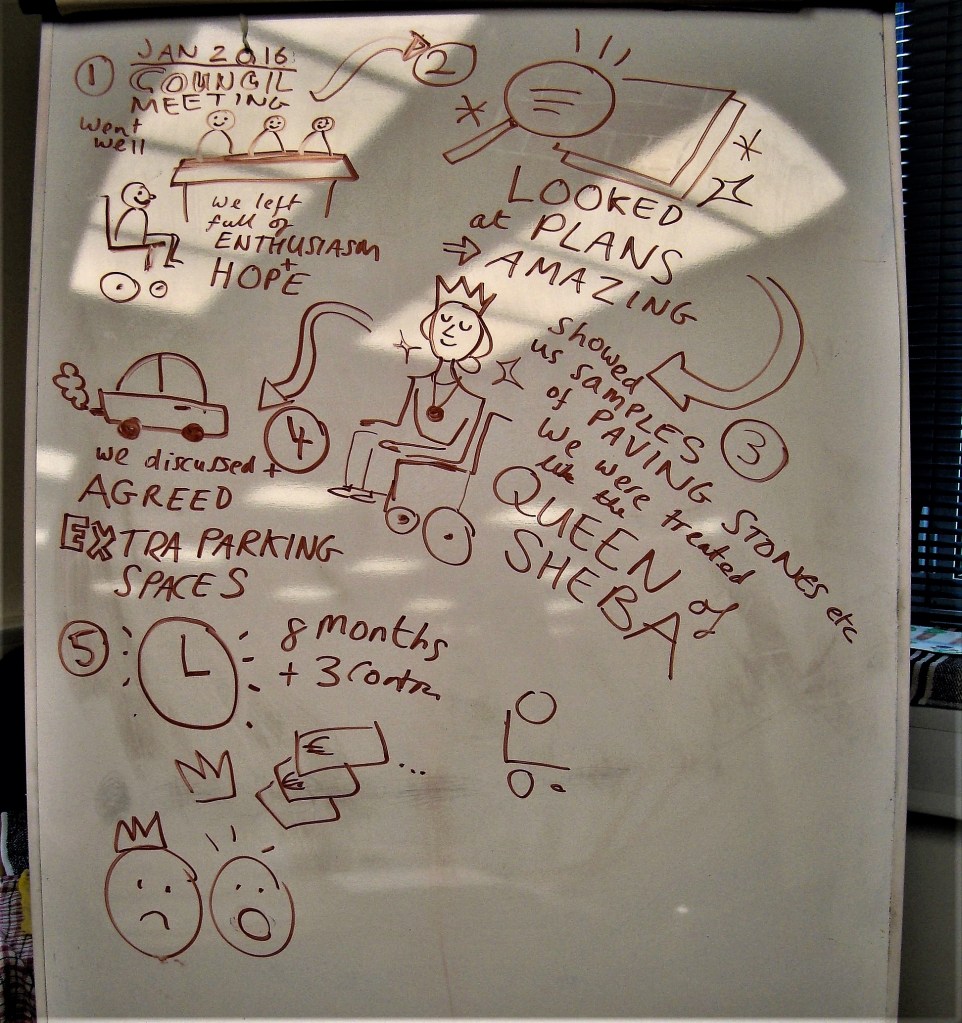 1
JAN 2016
COUNCIL
MEETING
went
well
we left
full of
ENTHUSIASM
+
HOPE
2
LOOKED
at PLANS
⇒ AMAZING
3
Showed
us samples
of PAVING STONES etc
We were treated
like the
QUEEN of
SHEBA
4
we discussed +
AGREED
EXTRA PARKING
SPACES
5
8 months
+ 3 contra
€
€
...